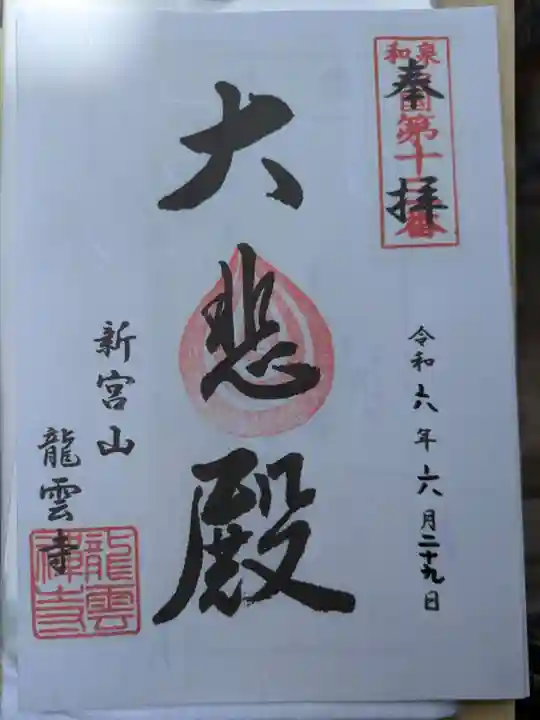 奉拝
和泉
国第十二番
令和六年六月二十九日
大悲殿
新宮山
龍雲寺
龍雲
禅寺